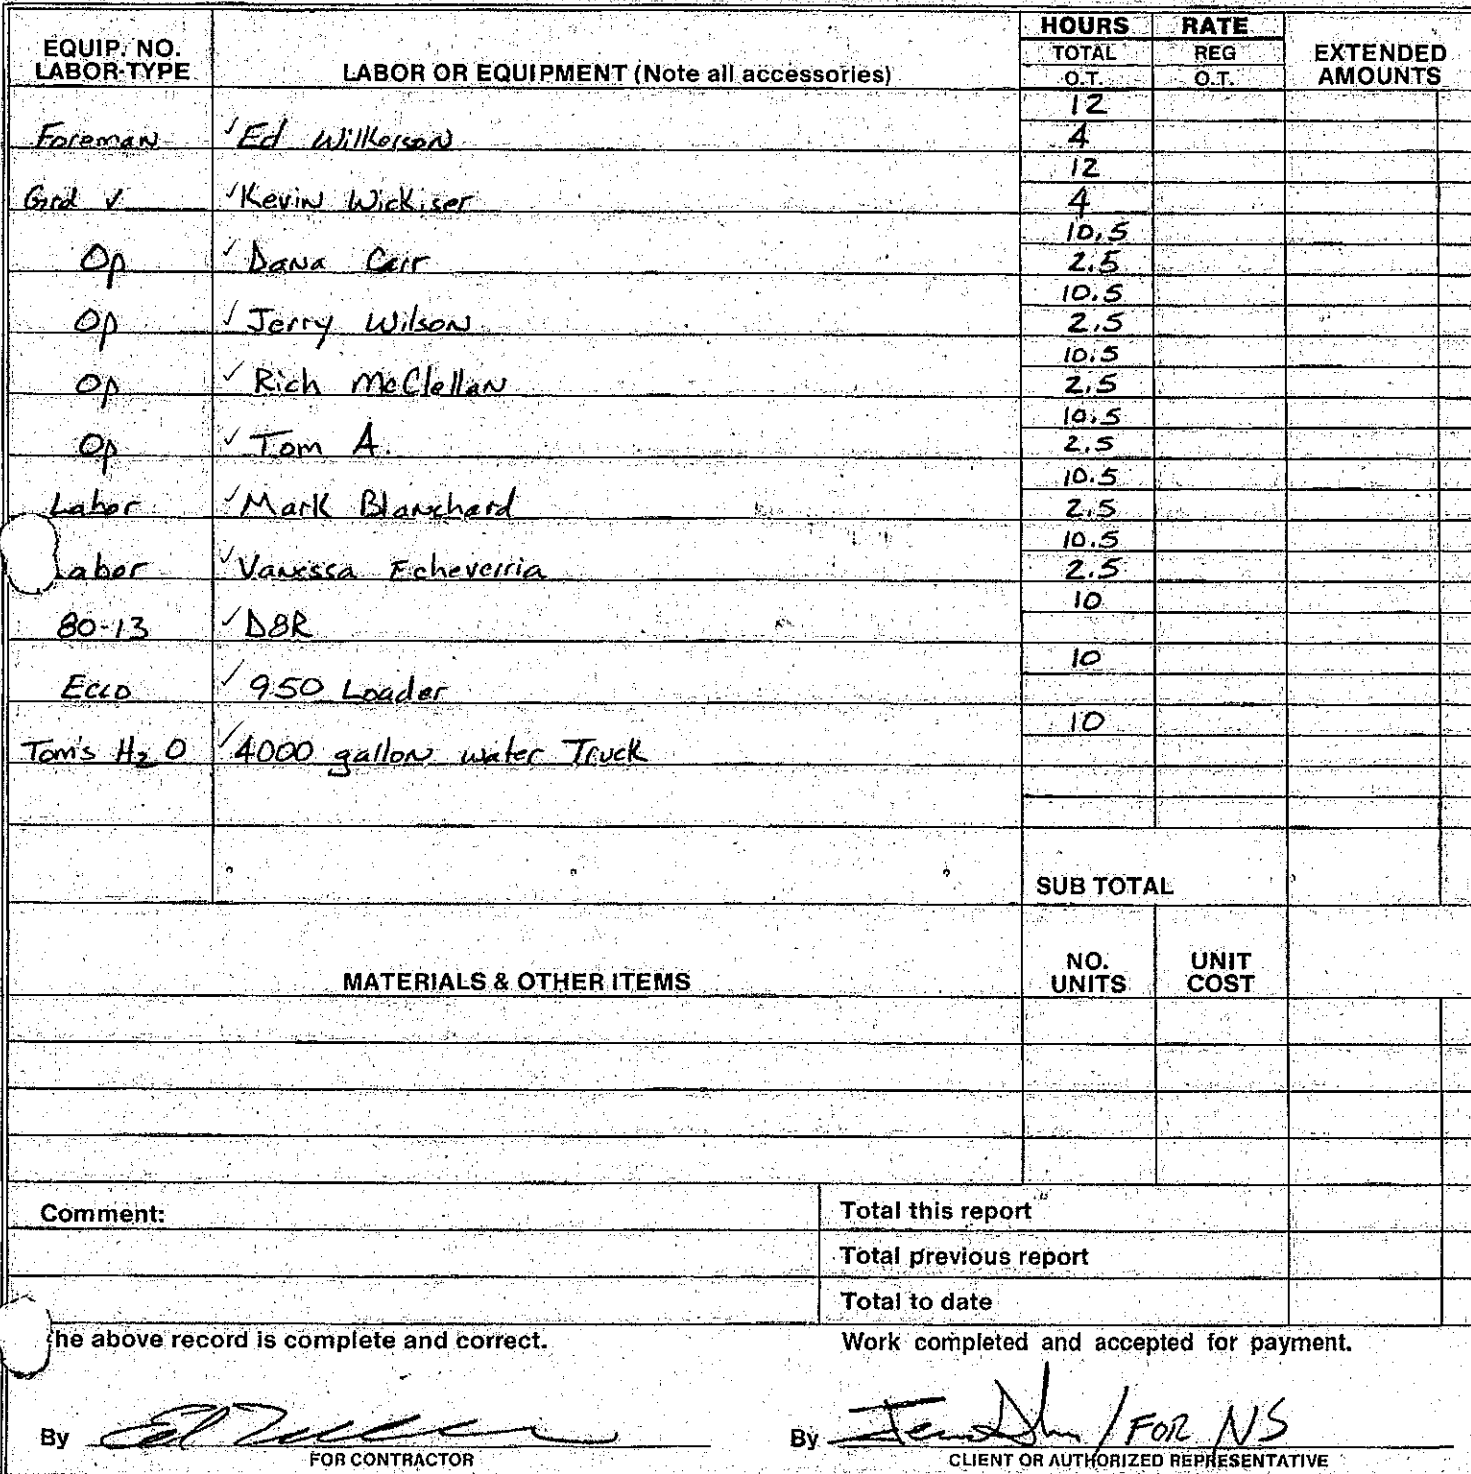 EQUIP. NO. LABOR-TYPE LABOR OR EQUIPMENT (Note all accessories) HOURS TOTAL O.T. RATE REG O.T. EXTENDED AMOUNTS
12
Foreman ✓Ed Wilkerson 4
12
Grd ✓ ✓Kevin Wickiser 4
10.5
Op ✓Dana Carr 2.5
10.5
Op ✓Jerry Wilson 2.5
10.5
Op ✓Rich McClellan 2.5
10.5
Op ✓Tom A. 2.5
10.5
Labor ✓Mark Blanchard 2.5
10.5
abor ✓Vanessa Echeverria 2.5
10
80-13 ✓D8R
10
Ecco ✓950 Loader
10
Tom's H2O ✓4000 gallon water Truck
SUB TOTAL
MATERIALS & OTHER ITEMS NO. UNITS UNIT COST
Comment: Total this report
Total previous report
Total to date
he above record is complete and correct. Work completed and accepted for payment.
By By / FOR NS
FOR CONTRACTOR CLIENT OR AUTHORIZED REPRESENTATIVE